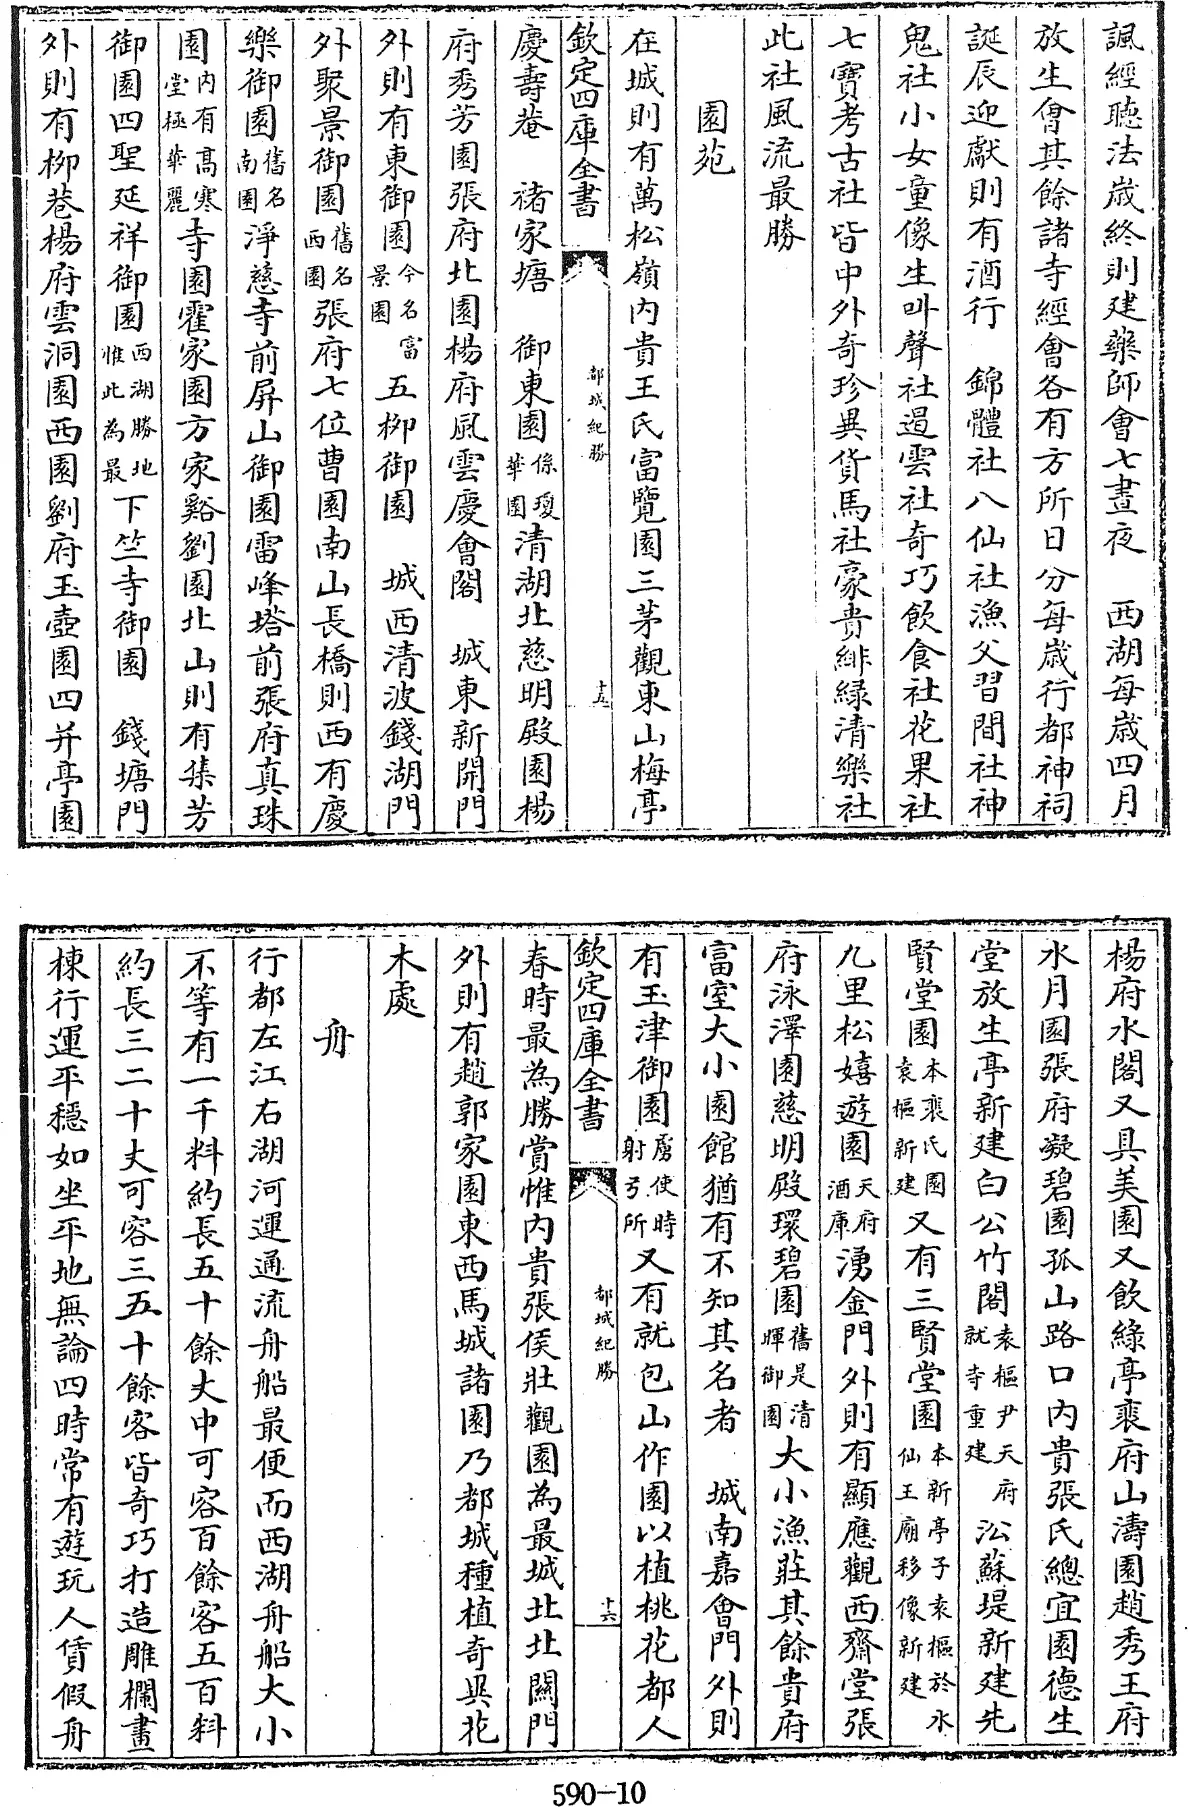 諷經聽法歲終則建藥師會七晝夜　西湖每歲四月
放生會其餘諸寺經會各有方所日分每歲行都神祠
誕辰迎獻則有酒行　錦體社八仙社漁父習閒社神
鬼社小女童像生叫聲社遏雲社奇巧飲食社花果社
七寶考古社皆中外奇珍異貨馬社豪貴緋綠清樂社
此社風流最勝
園苑
在城則有萬松嶺內貴王氏富覽園三茅觀東山梅亭
欽定四庫全書　都城紀勝　十五
慶壽菴　褚家塘　御東園係瓊華園清湖北慈明殿園楊
府秀芳園張府北園楊府風雲慶會閣　城東新開門
外則有東御園今名富景園　五柳御園　城西清波錢湖門
外聚景御園舊名西園張府七位曹園南山長橋則西有慶
樂御園舊名南園淨慈寺前屏山御園雷峰塔前張府真珠
園內有高寒堂極華麗寺園霍家園方家谿劉園北山則有集芳
御園四聖延祥御園西湖勝地惟此為最下竺寺御園　錢塘門
外則有柳巷楊府雲洞園西園劉府玉壺園四并亭園
楊府水閣又具美園又飲綠亭裴府山濤園趙秀王府
水月園張府凝碧園孤山路口內貴張氏總宜園德生
堂放生亭新建白公竹閣袁樞尹天府就寺重建沿蘇堤新建先
賢堂園本裴氏園袁樞新建又有三賢堂園本新亭子袁樞於水仙王廟移像新建
九里松嬉遊園天府酒庫湧金門外則有顯應觀西齋堂張
府泳澤園慈明殿環碧園舊是清暉御園大小漁莊其餘貴府
富室大小園館猶有不知其名者　城南嘉會門外則
有玉津御園虜使時射弓所又有就包山作園以植桃花都人
欽定四庫全書　都城紀勝　十六
春時最為勝賞惟內貴張侯壯觀園為最城北北關門
外則有趙郭家園東西馬城諸園乃都城種植奇異花
木處
舟
行都左江右湖河運通流舟船最便而西湖舟船大小
不等有一千料約長五十餘丈中可容百餘客五百料
約長三二十丈可容三五十餘客皆奇巧打造雕欄畫
棟行運平穩如坐平地無論四時常有遊玩人賃假舟
590-10